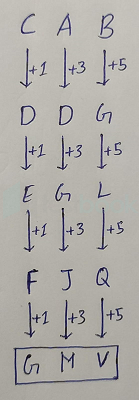 C A B
+1 +3 +5
D D G
+1 +3 +5
E G L
+1 +3 +5
F J Q
+1 +3 +5
G M V